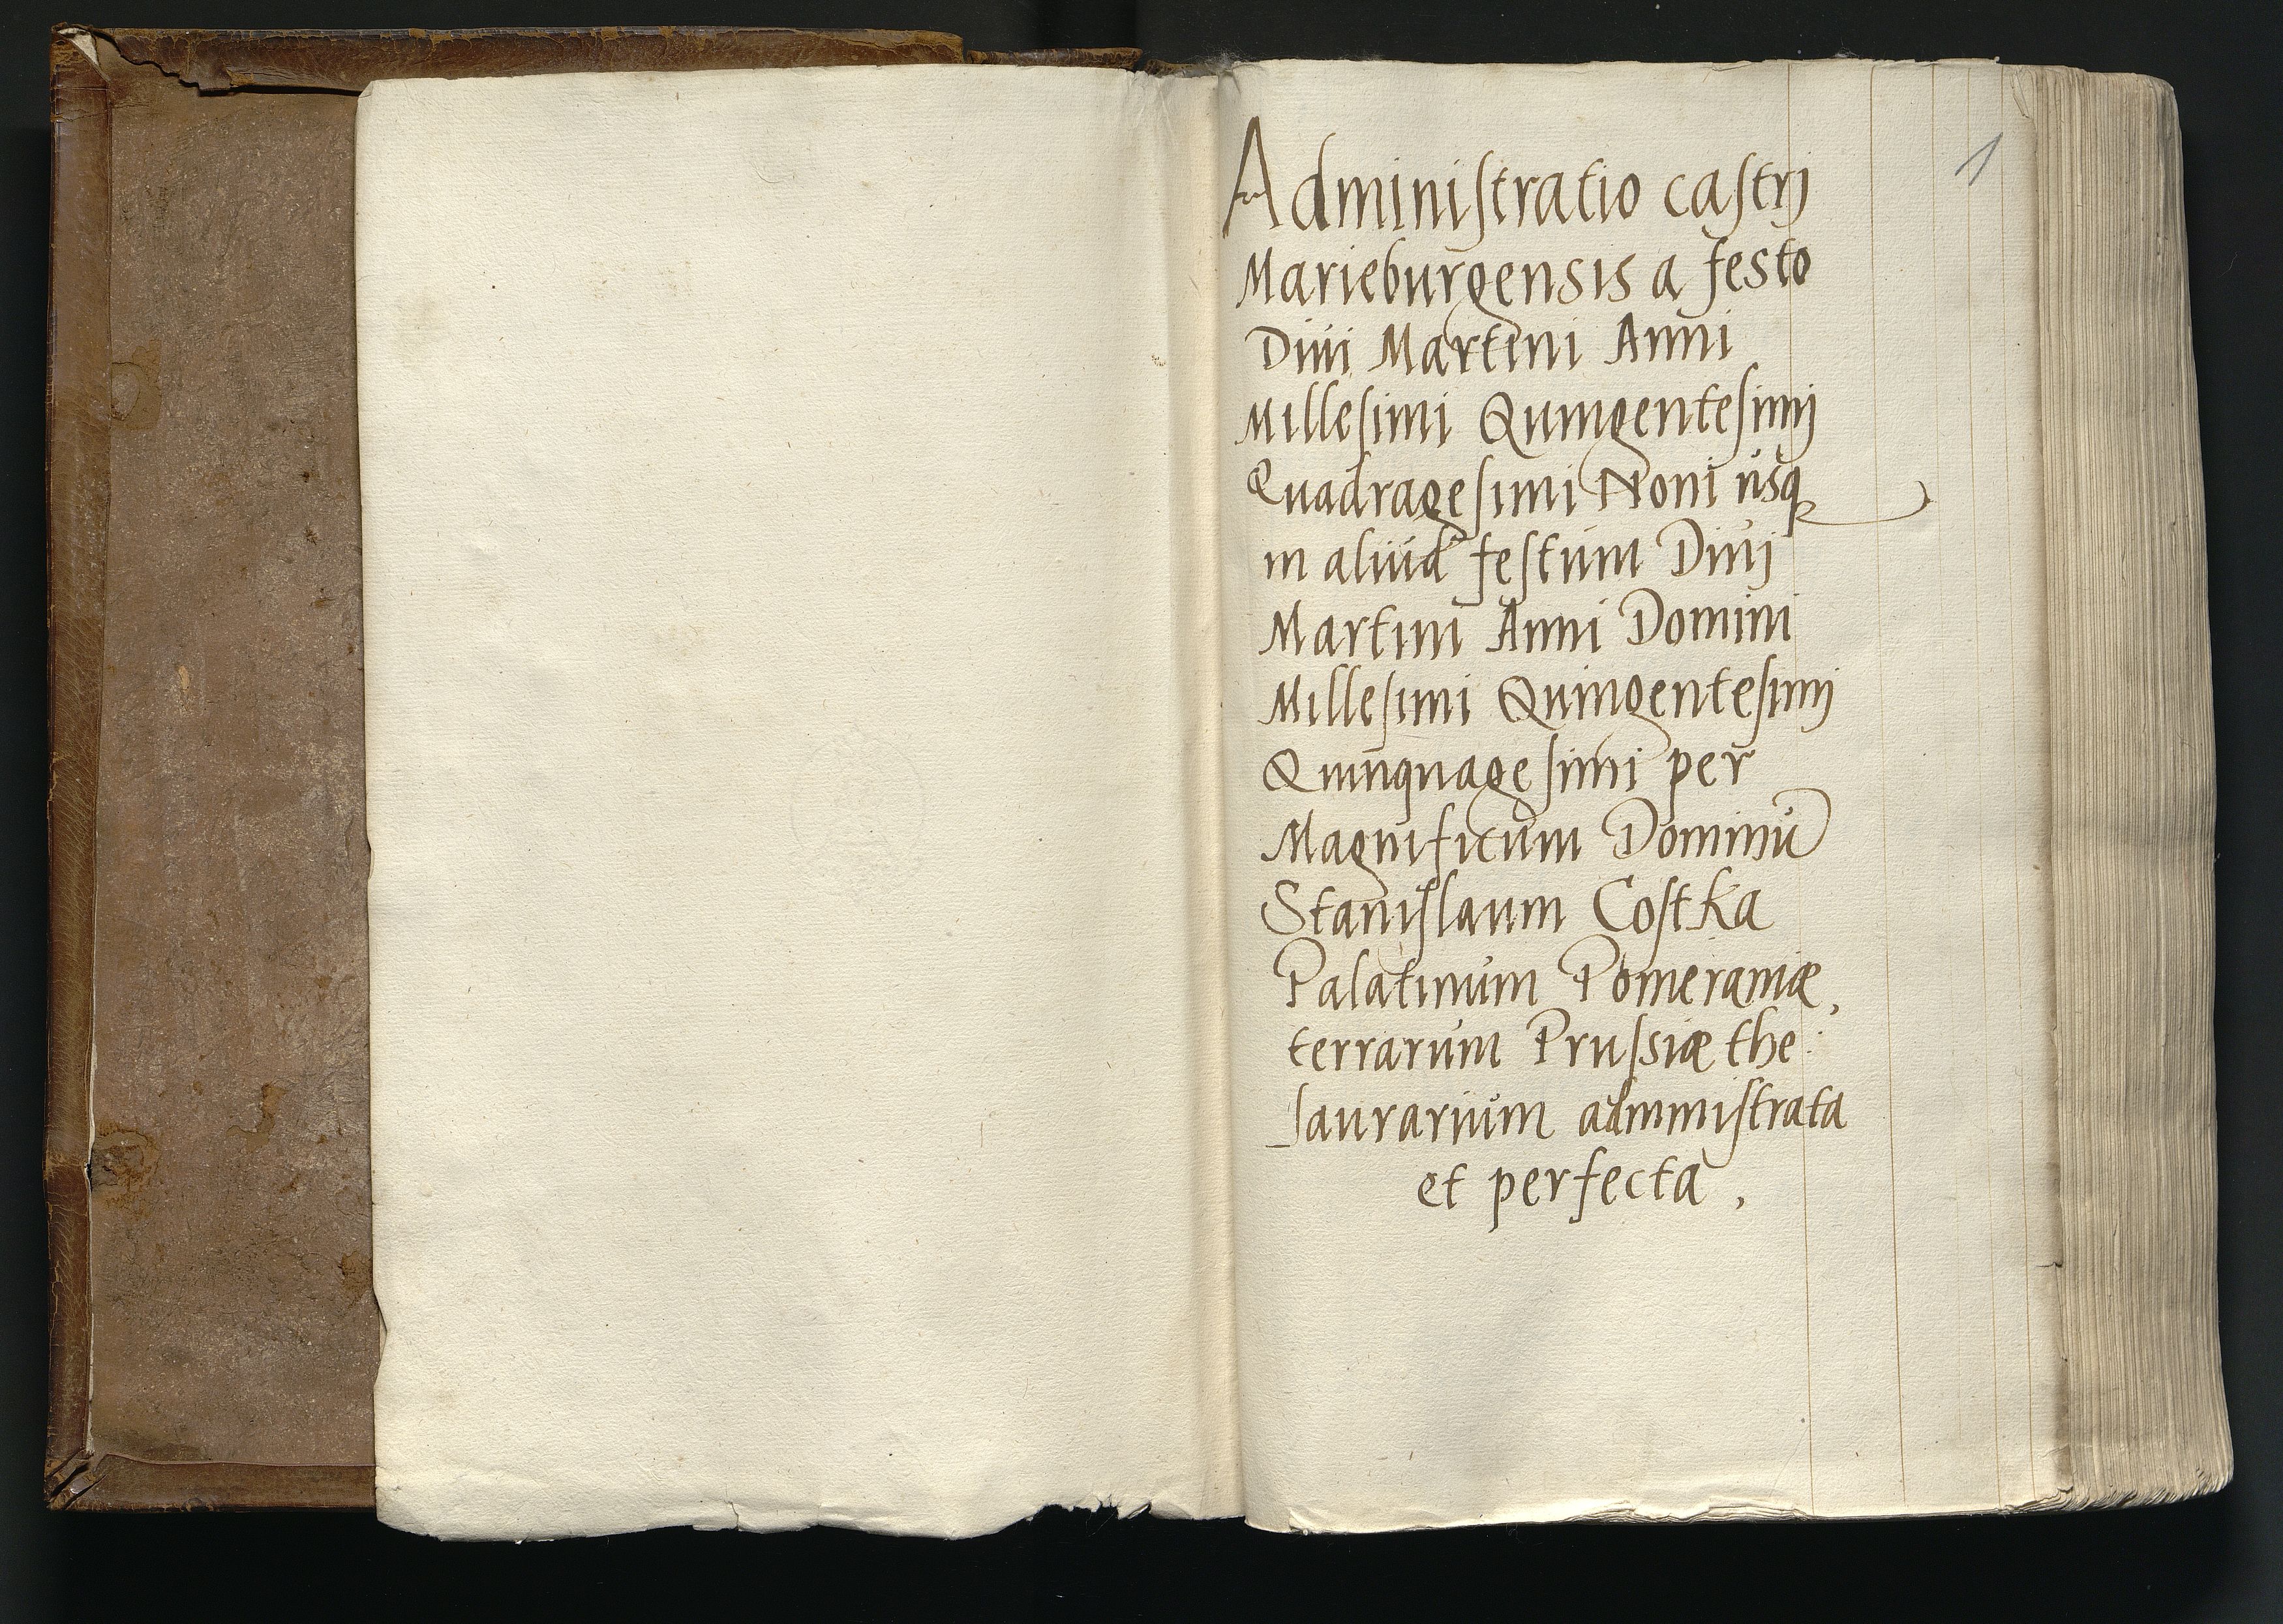 1
Adminiſtratio caſtrj
Marieburgensis a festo
Diui Martini Anni
Milleſimi Quingenteſimj
Quadrageſimi Noni usq
in aliud feſtum Diuj
Martini Anni Domini
Milleſimi Quingenteſimj
Quinquageſimi per
Magnificum Dominū
Staniſlaum Coſtka
Palatinum Pomeraniæ,
terrarum Pruſsiæ the:
ſaurarium adminiſtrata
et perfecta,